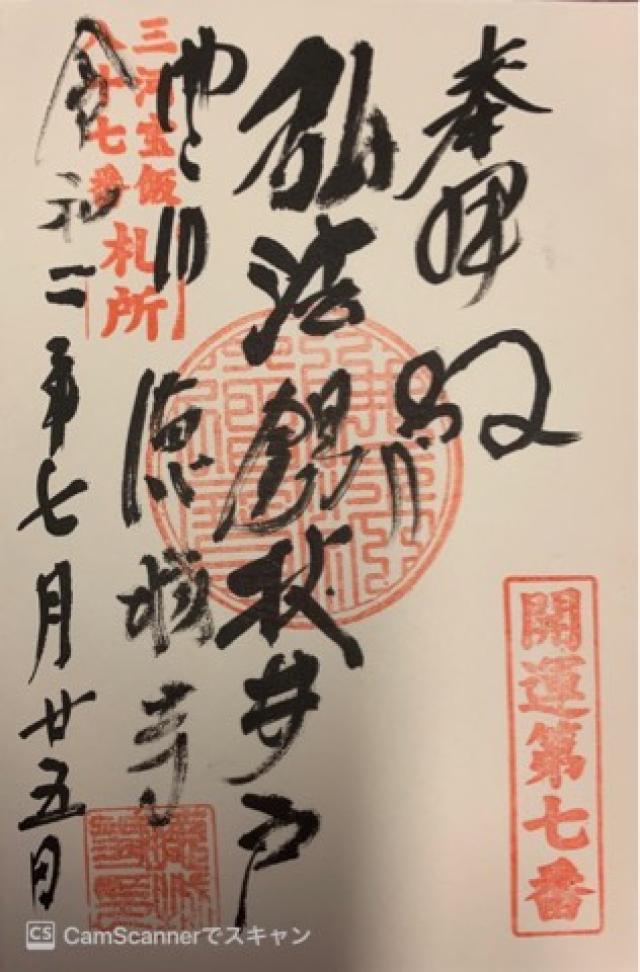 奉拝
開運第七番
弘法錫杖井戸
三河宝飯
八十七番
札所
徳城寺
令和二年七月廿五日
CS CamScannerでスキャン